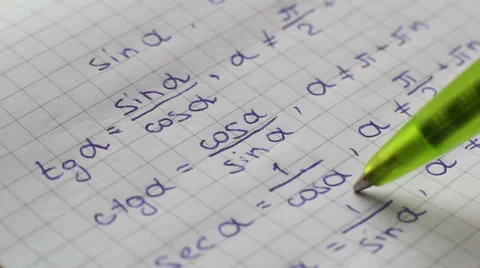 sin α,
tg α = sin α / cos α, α ≠ π/2 +
ctg α = cos α / sin α, α ≠ π + πn
sec α = 1 / cos α, α ≠ π/2 + πn
= 1 / sin α, α ≠